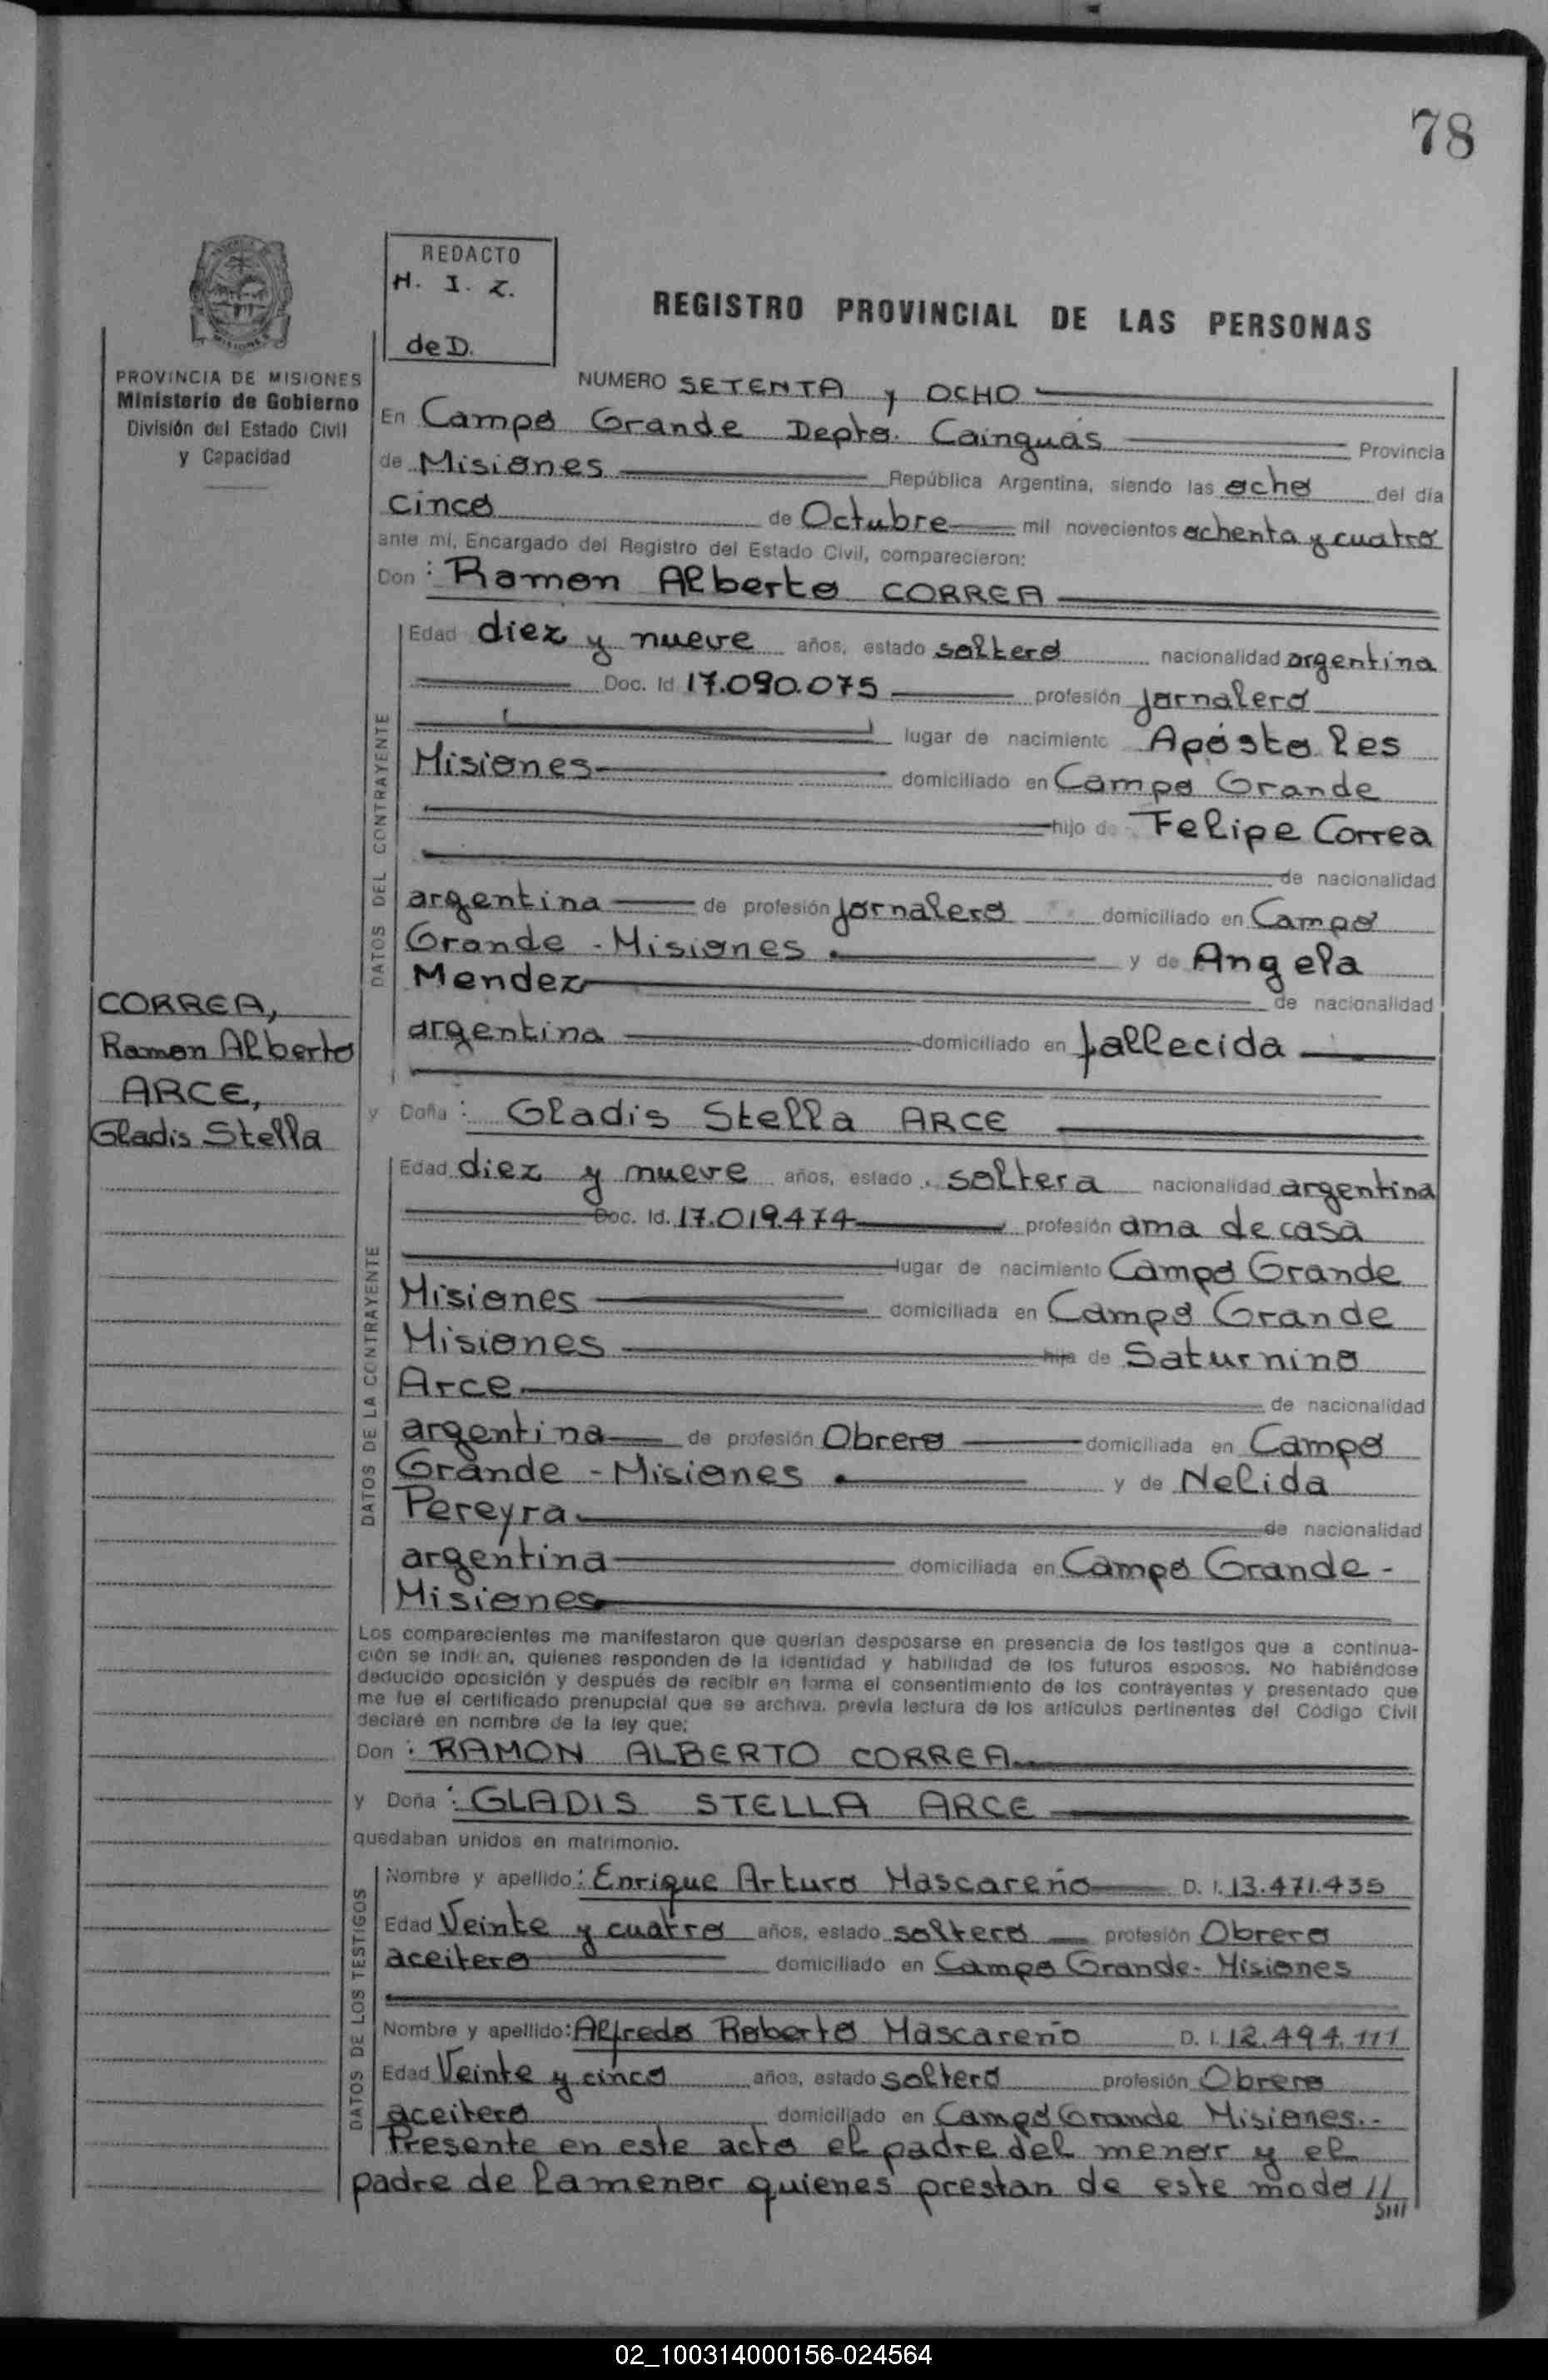 78
REDACTO
H. I. Z.
de D.
REGISTRO PROVINCIAL DE LAS PERSONAS
PROVINCIA DE MISIONES
Ministerio de Gobierno
División del Estado Civil
y Capacidad
NUMERO SETENTA y OCHO
En Campo Grande Depto. Cainguás Provincia
de Misiones República Argentina, siendo las ocho del día
cinco de Octubre mil novecientos ochenta y cuatro
ante mí, Encargado del Registro del Estado Civil, comparecieron:
Don: Ramon Alberto CORREA
DATOS DEL CONTRAYENTE
Edad diez y nueve años, estado soltero nacionalidad argentina
Doc. Id 17.090.075 profesión jornalero
lugar de nacimiento Apóstoles
Misiones domiciliado en Campo Grande
hijo de Felipe Correa
de nacionalidad
argentina de profesión jornalero domiciliado en Campo
Grande - Misiones y de Angela
Mendez de nacionalidad
argentina domiciliado en fallecida
CORREA,
Ramon Alberto
ARCE,
Gladis Stella
y Doña: Gladis Stella ARCE
DATOS DE LA CONTRAYENTE
Edad diez y nueve años, estado soltera nacionalidad argentina
Doc. Id. 17.019.474 profesión ama de casa
lugar de nacimiento Campo Grande
Misiones domiciliada en Campo Grande
Misiones hija de Saturnino
Arce de nacionalidad
argentina de profesión Obrero domiciliada en Campo
Grande - Misiones y de Nelida
Pereyra de nacionalidad
argentina domiciliada en Campo Grande -
Misiones
Los comparecientes me manifestaron que querían desposarse en presencia de los testigos que a continua-
ción se indican, quienes responden de la identidad y habilidad de los futuros esposos. No habiéndose
deducido oposición y después de recibir en forma el consentimiento de los contrayentes y presentado que
me fue el certificado prenupcial que se archiva, previa lectura de los artículos pertinentes del Código Civil
declaré en nombre de la ley que:
Don: RAMON ALBERTO CORREA
y Doña: GLADIS STELLA ARCE
quedaban unidos en matrimonio.
DATOS DE LOS TESTIGOS
Nombre y apellido: Enrique Arturo Mascareño D. I. 13.471.435
Edad Veinte y cuatro años, estado soltero profesión Obrero
aceitero domiciliado en Campo Grande- Misiones
Nombre y apellido: Alfredo Roberto Mascareño D. I. 12.494.111
Edad Veinte y cinco años, estado soltero profesión Obrero
aceitero domiciliado en Campo Grande Misiones.-
Presente en este acto el padre del menor y el
padre de la menor quienes prestan de este modo //
02_100314000156-024564